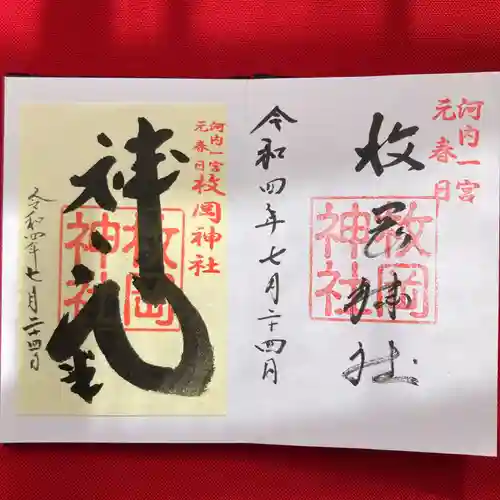 河内一宮
元春日
枚岡神社
枚岡
神社
令和四年七月二十四日
河内一宮
元春日
枚岡神社
枚岡
神社
令和四年七月二十四日